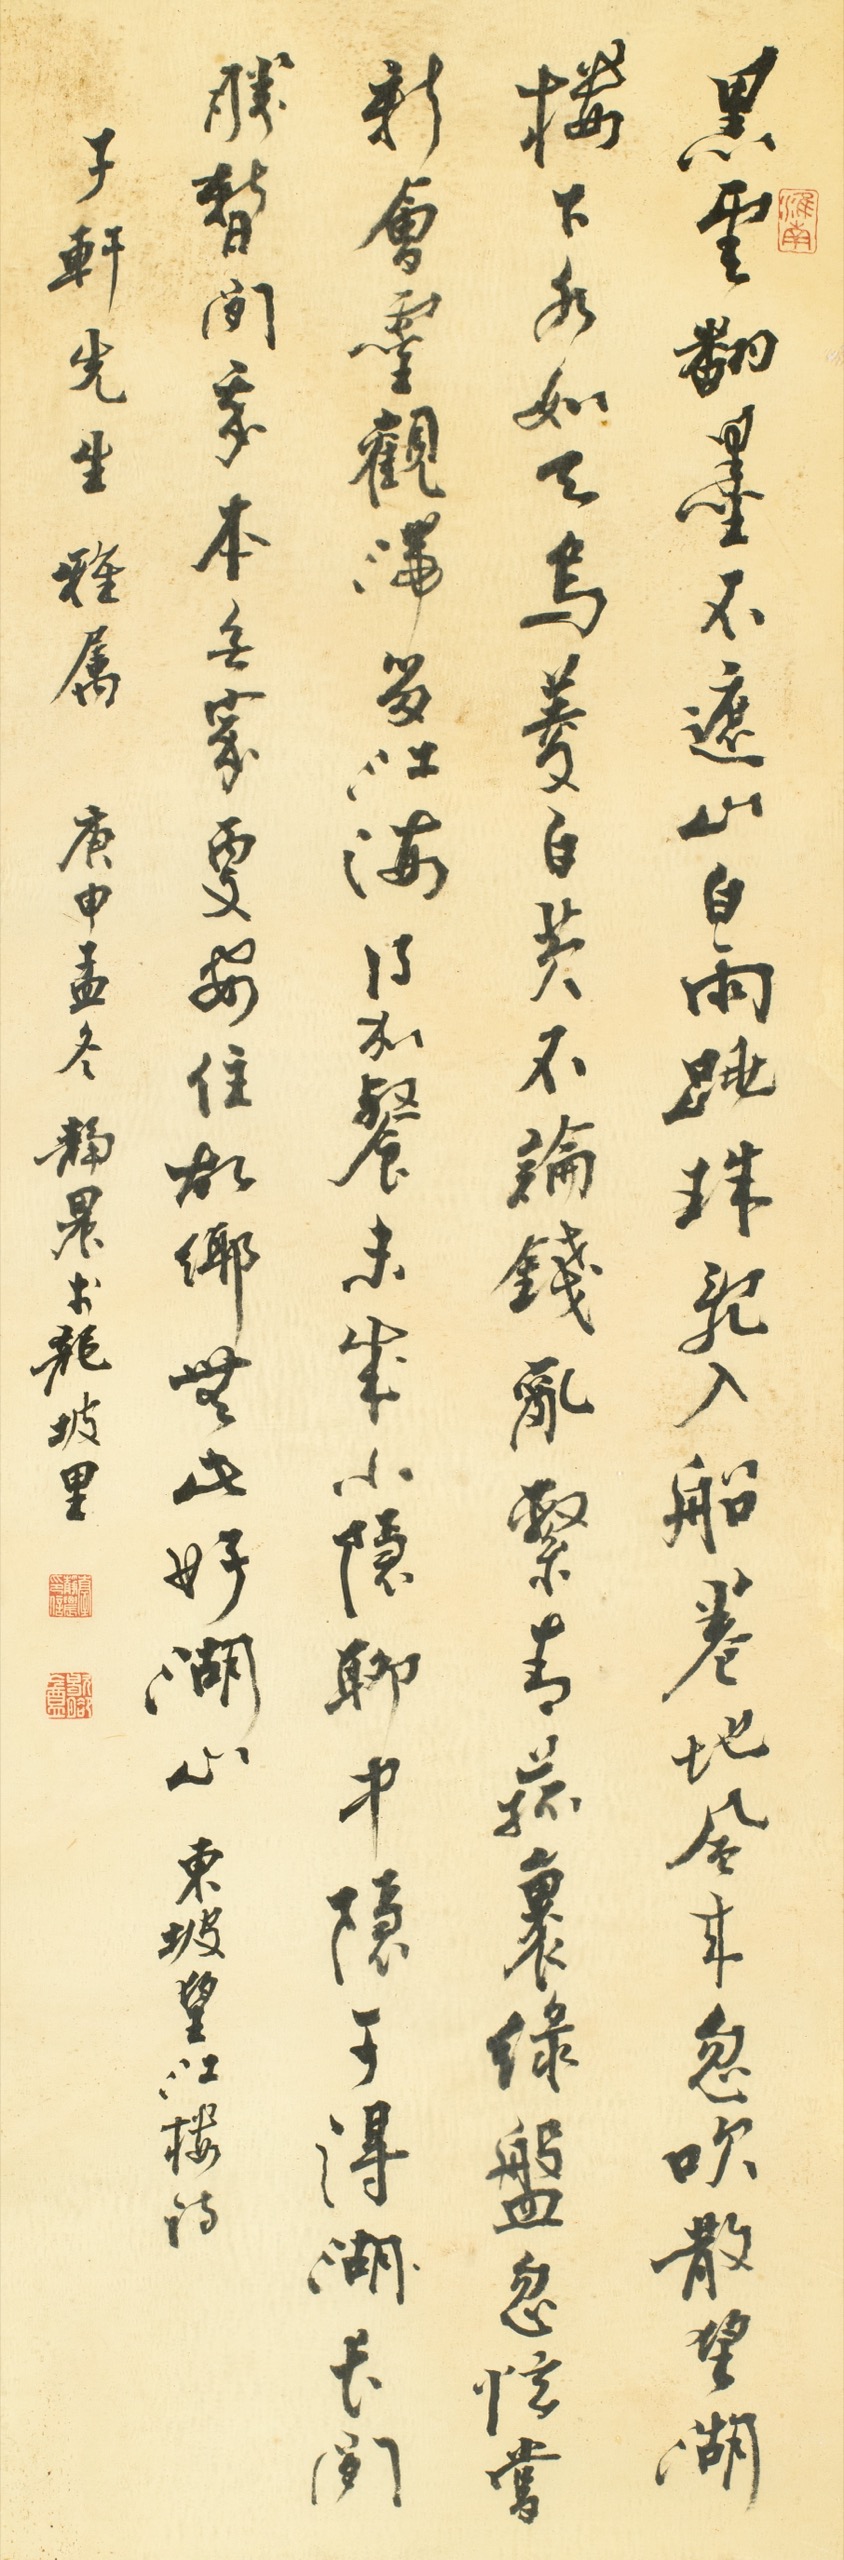 淮南
黑雲翻墨不遮山白雨跳珠亂入船卷地風來忽吹散望湖
樓下水如天烏菱白芡不論錢亂繫青菰裹綠盤忽憶嘗
新會靈觀滯留江海得加餐未成小隱聊中隱可得湖長閒
勝暫閒我本無家更安住故鄉無此好湖山 東坡望江樓詩
子軒先生 雅屬 庚申孟冬 靜農於龍坡里
歇腳盦